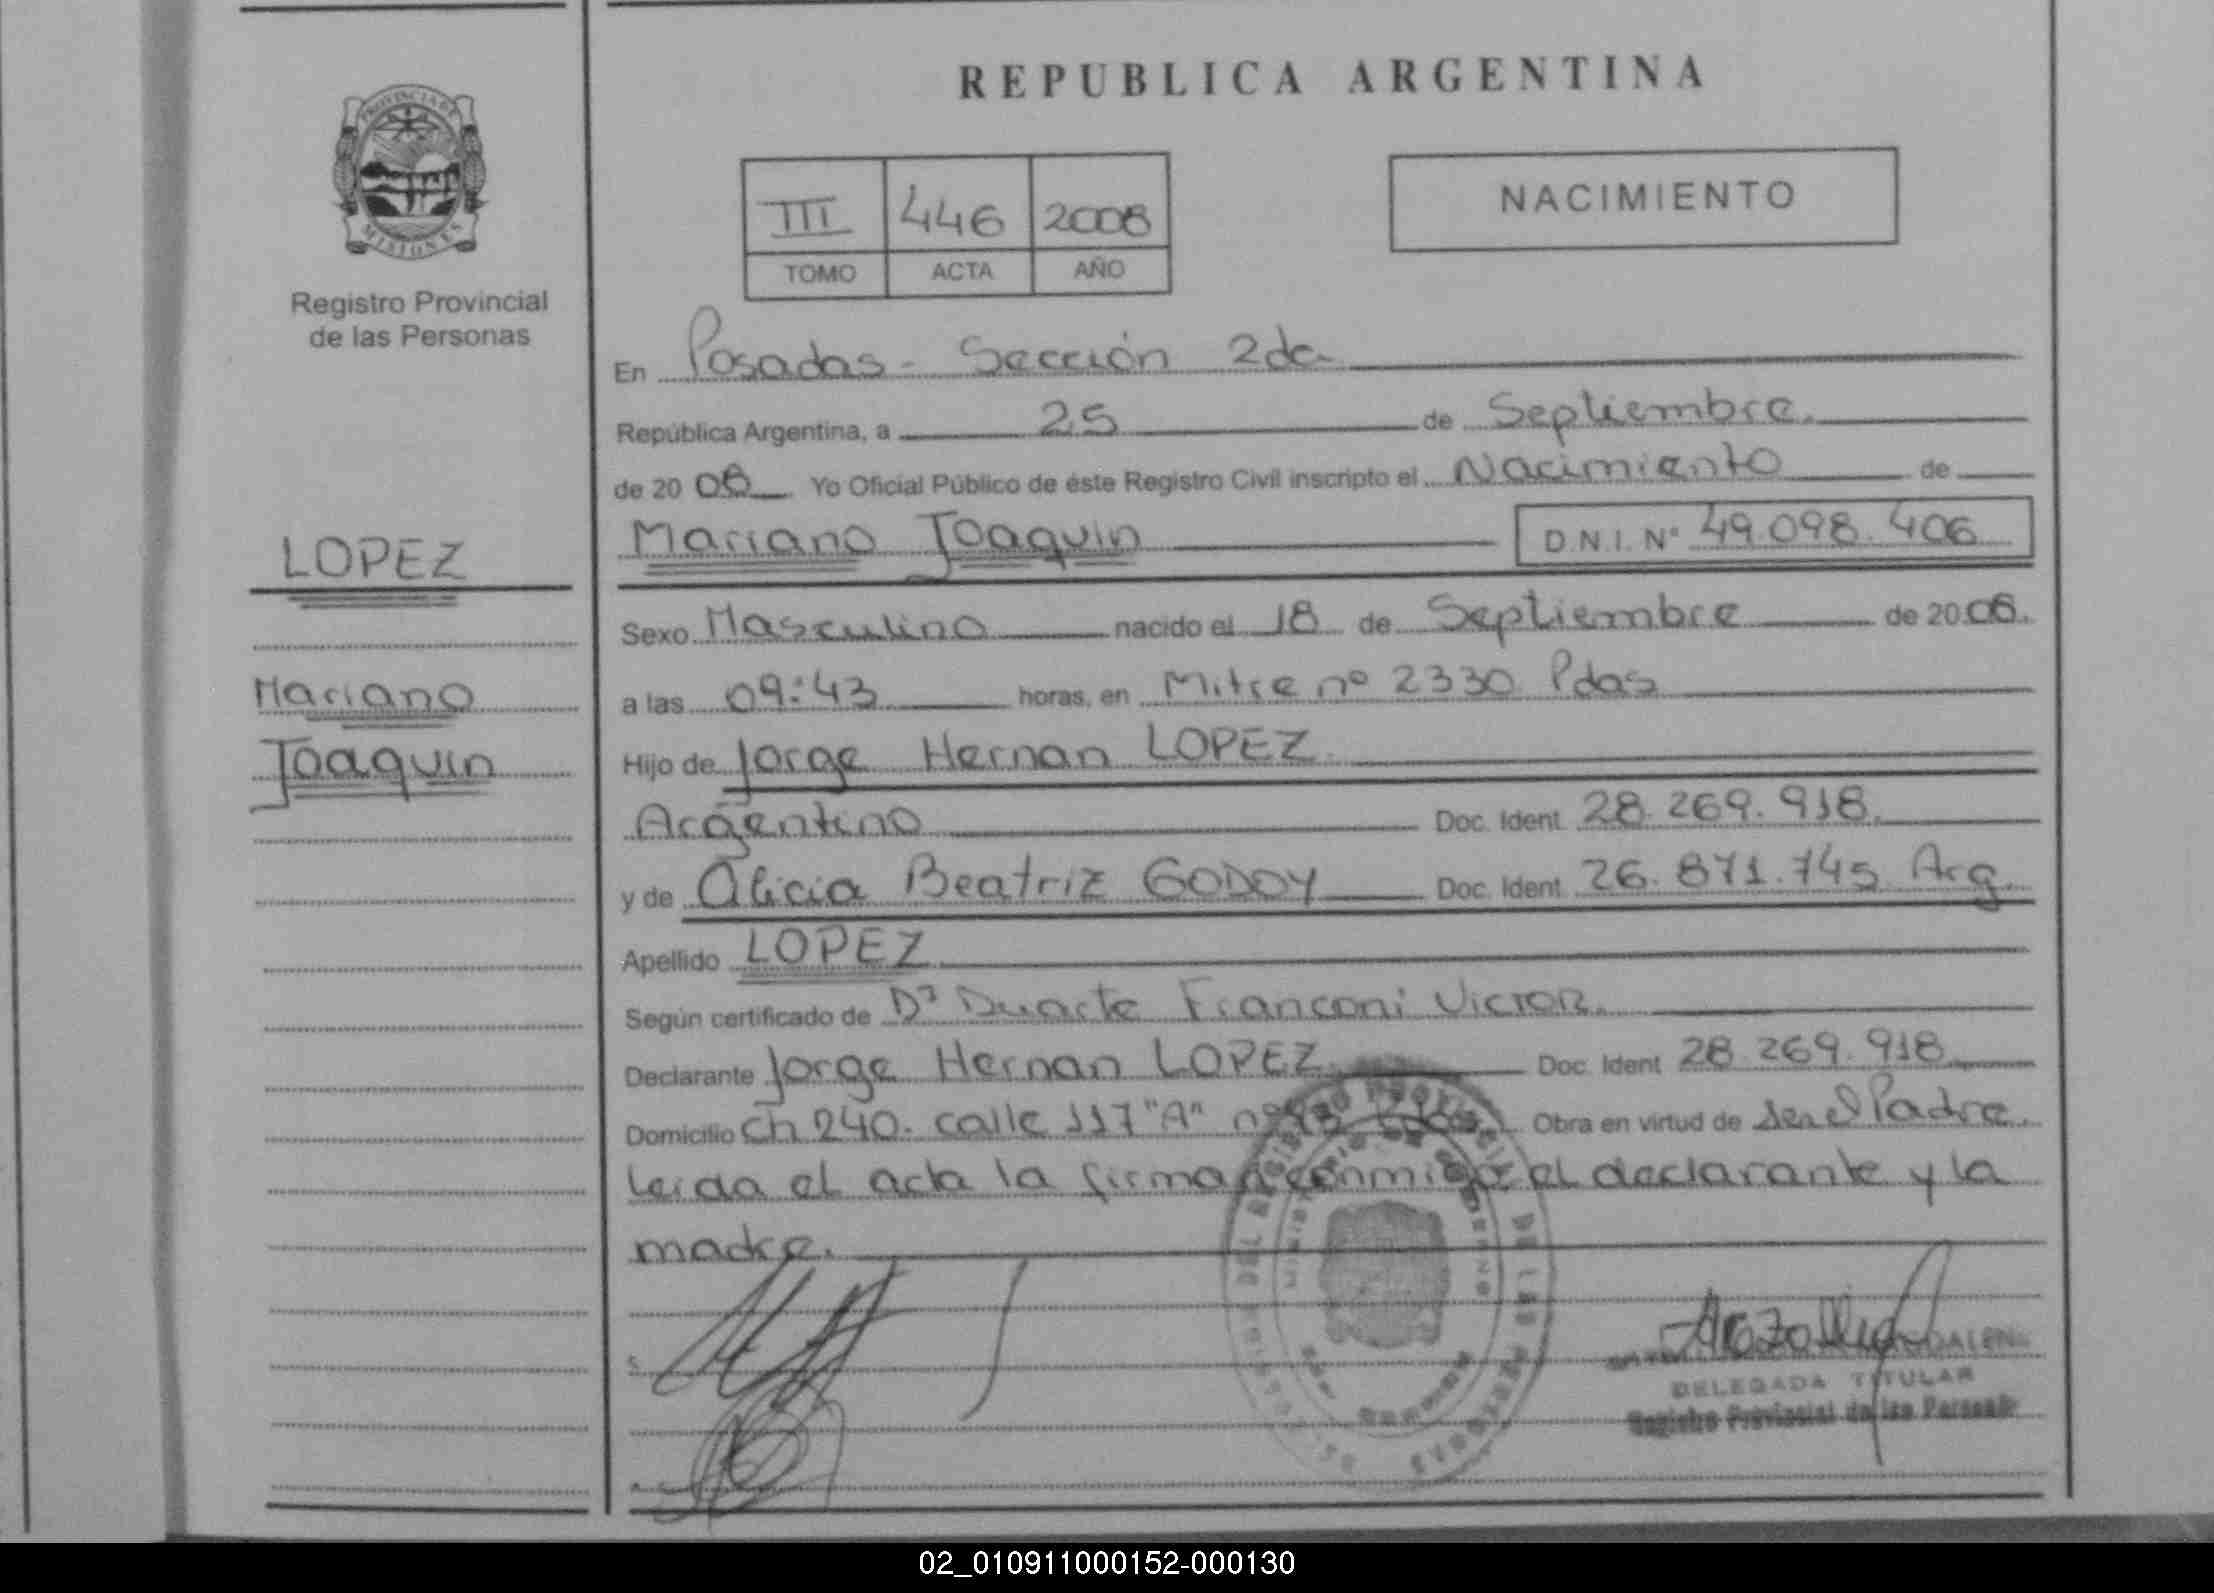 REPUBLICA ARGENTINA
PROVINCIA DE
MISIONES
Registro Provincial
de las Personas
III 446 2008
TOMO ACTA AÑO
NACIMIENTO
En Posadas - Sección 2da
República Argentina, a 25 de Septiembre.
de 20 08 Yo Oficial Público de éste Registro Civil inscripto el Nacimiento de
Mariano Joaquin D.N.I. Nº 49.098.406
LOPEZ
Mariano
Joaquin
Sexo Masculino nacido el 18 de Septiembre de 20 08.
a las 09:43 horas, en Mitre nº 2330 Pdas
Hijo de Jorge Hernan LOPEZ.
Argentino Doc. Ident 28.269.918.
y de Alicia Beatriz GODOY Doc. Ident 26.871.745 Arg.
Apellido LOPEZ
Según certificado de Dr Duarte Franconi Victor.
Declarante Jorge Hernan LOPEZ. Doc. Ident 28.269.918
Domicilio Ch 240. calle 117 "A" nº Obra en virtud de ser el Padre.
Leida el acta la firman conmigo el declarante y la
madre.
DELEGADA TITULAR
Registro Provincial de las Personas
02_010911000152-000130